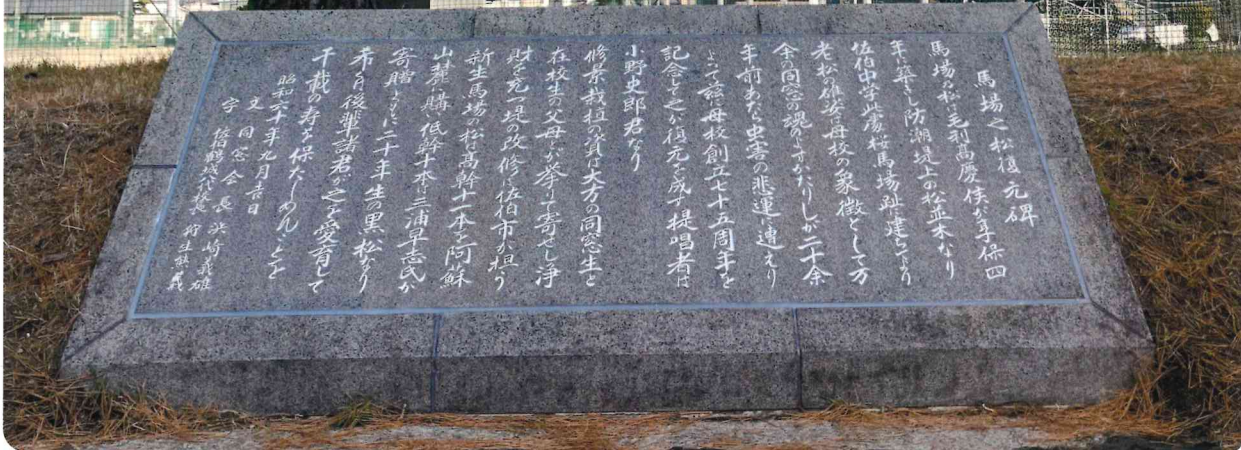 馬場之松復元碑
馬場の松は毛利高慶侯が享保四
年に築きし防潮堤上の松並木なり
佐伯中学此處桜馬場趾に建ちてより
老松雄姿は母校の象徴として万
余の同窓の魂のよすがたりしが二十余
年前あたら虫害の悲運に遭えり
よって茲に母校創立七十五周年を
記念して之が復元を成す提唱者は
小野史郎君なり
修景栽植の資は大方の同窓生と
在校生の父母とが挙げて寄せし浄
財を充つ堤の改修は佐伯市が担う
新生馬場の松は高幹十一本を阿蘇
山麓に購い低幹十本は三浦早志氏が
寄贈さる に二十年生の黒松なり
希くは後輩諸君が之を愛育して
千載の寿を保たしめんことを
昭和六十年九月吉日
文 同窓会長 浜崎義雄
字 佐伯鶴城 代校長 狩生熊義